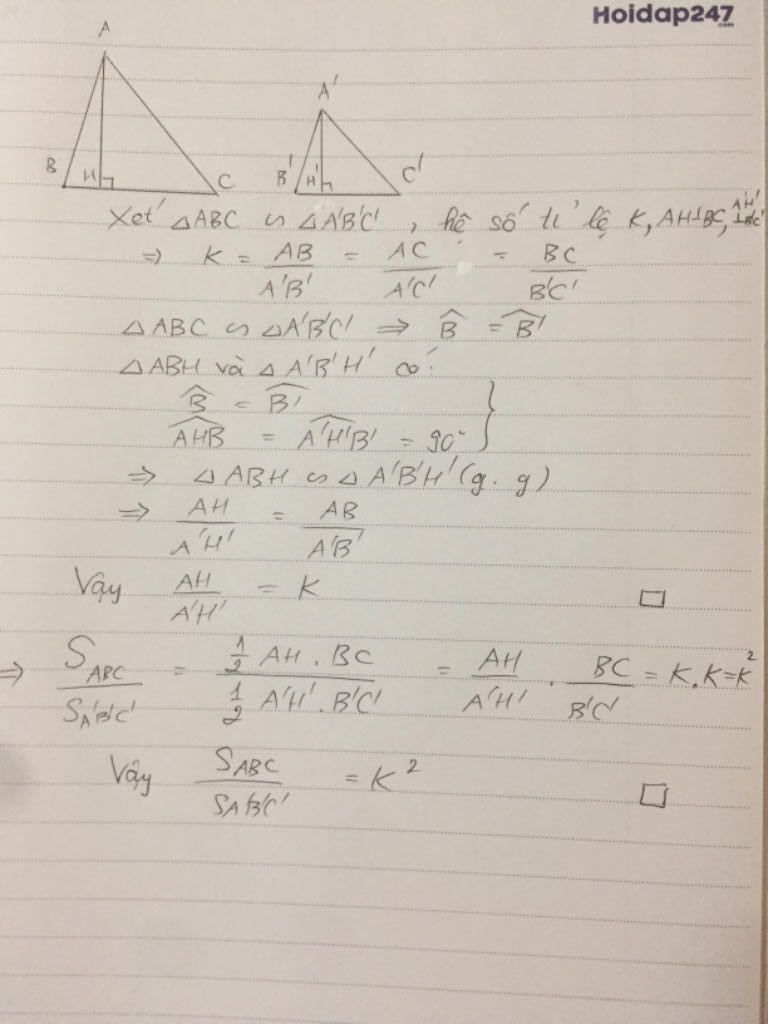 Hoidap247
.com
A
A'
B H C B' H' C'
Xét △ABC ∽ △A'B'C', hệ số tỉ lệ K, AH⊥BC, A'H'⊥B'C'
⇒ K = AB/A'B' = AC/A'C' = BC/B'C'
△ABC ∽ △A'B'C' ⇒ B̂ = B̂'
△ABH và △A'B'H' có:
B̂ = B̂'
AHB = A'H'B' = 90° }
⇒ △ABH ∽ △A'B'H' (g.g)
⇒ AH/A'H' = AB/A'B'
Vậy AH/A'H' = K □
⇒ S_ABC/S_A'B'C' = (1/2 AH . BC)/(1/2 A'H'. B'C') = AH/A'H' . BC/B'C' = K.K=K²
Vậy S_ABC/S_A'B'C' = K² □